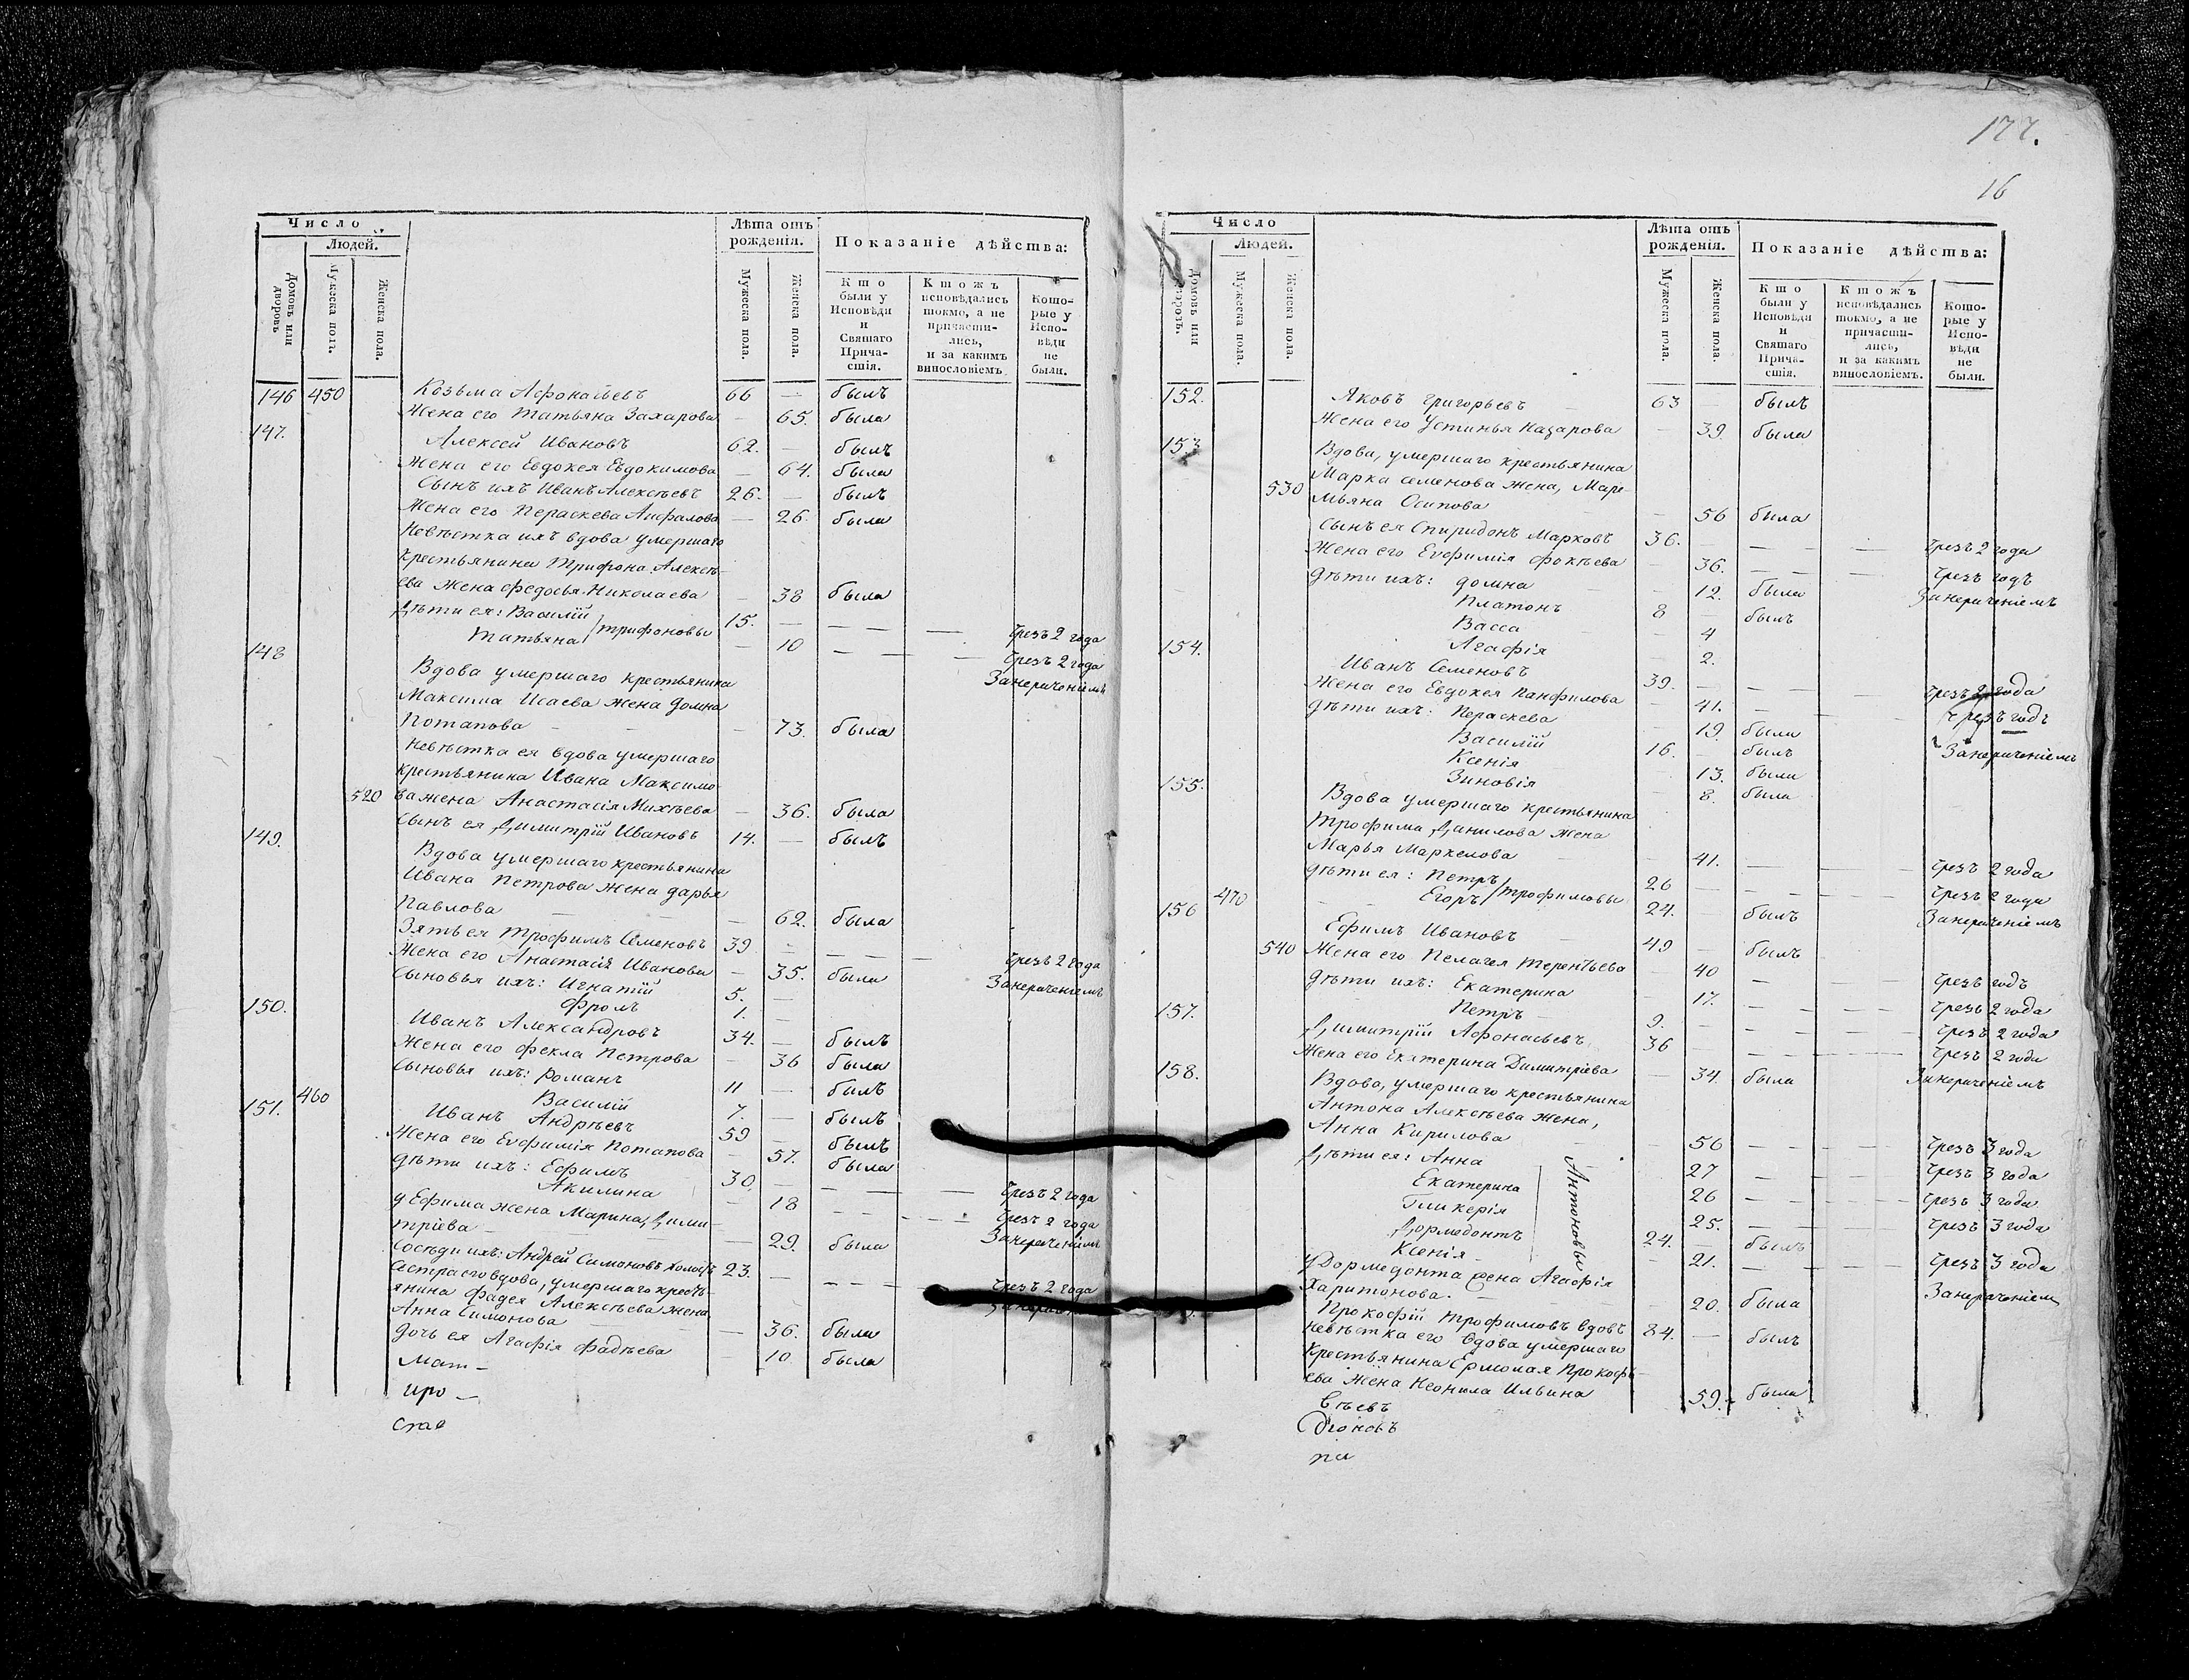 177.
16
Число
Людей.
Домовъ или дворовъ
Мужеска пола.
Женска пола.
Лѣта отъ рожденія.
Мужеска пола.
Женска пола.
Показаніе дѣйства:
Кто были у Исповѣди и Святаго Причастія.
Ктожъ исповѣдались токмо, а не причастились, и за какимъ винословіемъ
Которые у Исповѣди не были.
146 450 Козьма Афонасьевъ 66 — былъ
Жена его Татьяна Захарова — 65. была
147. Алексей Ивановъ 62. — былъ
Жена его Евдокея Евдокимова — 64. была
Сынъ ихъ Иванъ Алексѣевъ 26. — былъ
Жена его Пераскева Анфалова — 26. была
Невѣстка ихъ вдова умершаго
Крестьянина Трифона Алексѣ-
ева жена Федосья Николаева — 38 была
Дѣти ея: Василій 15. — — — — чрезъ 2 года
Татьяна Трифоновы — 10 — — — чрезъ 2 года
Занераченіемъ
148 Вдова умершаго крестьянина
Максима Исаева жена Домна
Потапова — — 73. была
Невѣстка ея вдова умершаго
крестьянина Ивана Максимо-
520 ва жена Анастасія Михѣева — 36. была
Сынъ ея Димитрій Ивановъ 14. — былъ
149. Вдова умершаго крестьянина
Ивана Петрова жена Дарья
Павлова — — — 62. была
Зять ея Трофимъ Семеновъ 39 — — — — чрезъ 2 года
Жена его Анастасія Иванова — 35. была Занераченіемъ
Сыновья ихъ: Игнатій 5. —
Фролъ 1. —
150. Иванъ Александровъ 34. — былъ
Жена его Фекла Петрова — 36 была
Сыновья ихъ: Романъ 11 — былъ
460 Василій 7. — былъ
151. Иванъ Андрѣевъ 59 — былъ
Жена его Евфимія Потапова — 57. была
Дѣти ихъ: Ефимъ 30. — — — — чрезъ 2 года
Акилина — 18 — — — чрезъ 2 года
У Ефима жена Марина Дими- Занераченіемъ
тріева — — 29. была
Сосѣди ихъ: Андрей Симоновъ холостъ 23. — — — — чрезъ 2 года
Сестра его вдова, умершаго кресть-
янина Фадея Алексѣева жена
Анна Симонова — — 36. была
Дочь ея Агафія Фадѣева — 10 была
Мат-
ѳро-
став
Число
Людей.
Домовъ или дворовъ.
Мужеска пола.
Женска пола.
Лѣта отъ рожденія.
Мужеска пола.
Женска пола.
Показаніе дѣйства:
Кто были у Исповѣди и Святаго Причастія.
Ктожъ исповѣдались токмо, а не причастились, и за какимъ винословіемъ.
Которые у Исповѣди не были.
152. Яковъ Григорьевъ — 63 — былъ
Жена его Устинья Назарова — 39. была
153. Вдова, умершаго крестьянина
Марка Семенова жена, Маре-
530 мьяна Осипова — — 56 была
Сынъ ея Спиридонъ Марковъ 36. — — — — чрезъ 2 года
Жена его Евфимія Фокѣева — 36. — — — чрезъ годъ
Дѣти ихъ: Домна — 12. была Занераченіемъ
Платонъ 8 — былъ
Васса — 4
Агафія — 2.
154. Иванъ Семеновъ 39. — — — — чрезъ 2 года
Жена его Евдокея Панфилова — 41. — — — чрезъ годъ
Дѣти ихъ: Пераскева — 19. была
Василій 16. — былъ Занераченіемъ
Ксенія — 13. была
Зиновія — 8. была
155. Вдова умершаго крестьянина
Трофима Данилова жена
Марья Маркелова — — 41. — — — чрезъ 2 года
Дѣти ея: Петръ 26 — — — — чрезъ 2 года
470 Егоръ Трофимовы 24. — былъ Занераченіемъ
156 Ефимъ Ивановъ — 49 — былъ
540 Жена его Пелагея Терентьева — 40 — — — чрезъ годъ
Дѣти ихъ: Екатерина — 17. — — — чрезъ 2 года
Петръ — 9. — — — — чрезъ 2 года
157. Димитрій Афонасьевъ 36 — — — — чрезъ 2 года
Жена его Екатерина Димитріева — 34. была Занераченіемъ
158. Вдова, умершаго крестьянина
Антона Алексѣева жена,
Анна Кирилова — — 56 — — — чрезъ 3 года
Дѣти ея: Анна 27 — — — чрезъ 3 года
Екатерина 26 — — — чрезъ 3 года
Гликерія 25. — — — чрезъ 3 года
Дормедонтъ 24. — былъ
Ксенія — 21. — — — чрезъ 3 года
Антоновы
У Дормедонта жена Агафія Занераченіемъ
Харитонова. — — 20. была
Прокофій Трофимовъ вдовъ 84. — былъ
Невѣстка его вдова умершаго
Крестьянина Ермолая Прокофь-
ева жена Неонила Ильина 59. была